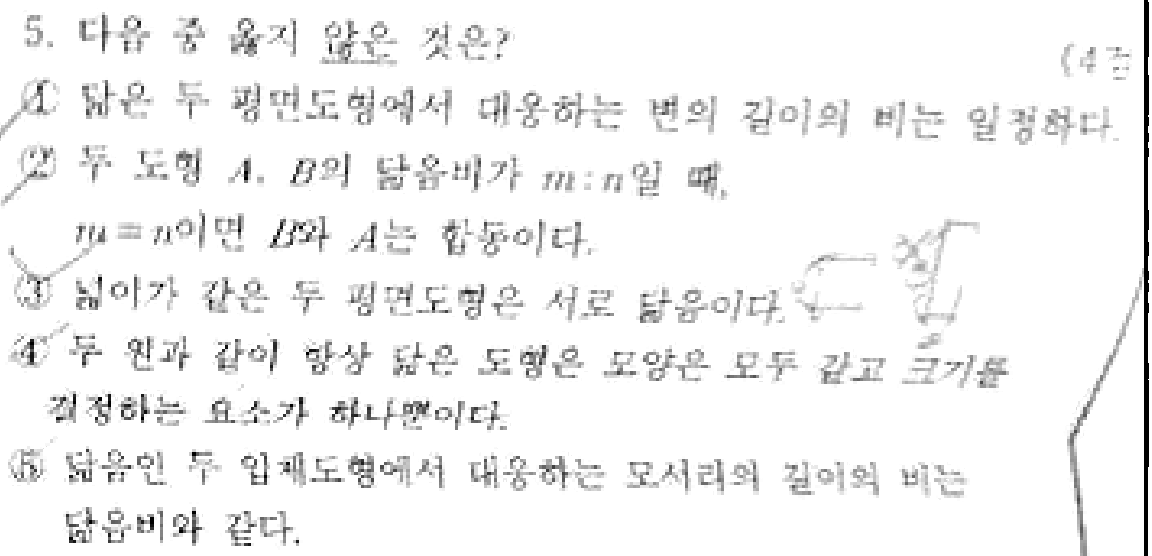 5. 다음 중 옳지 않은 것은?
(4
① 닮은 두 평면도형에서 대응하는 변의 길이의 비는 일정하다.
② 두 도형 A, B의 닮음비가 m:n일 때,
m=n이면 B와 A는 합동이다.
③ 넓이가 같은 두 평면도형은 서로 닮음이다.
④ 두 원과 같이 항상 닮은 도형은 모양은 모두 같고 크기를
결정하는 요소가 하나뿐이다.
⑤ 닮음인 두 입체도형에서 대응하는 모서리의 길이의 비는
닮음비와 같다.